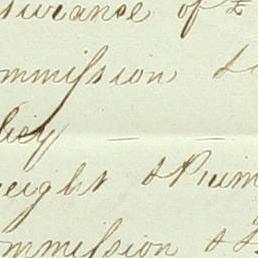 surance of £
ommission &
licy — —
reight & Prim
ommission &